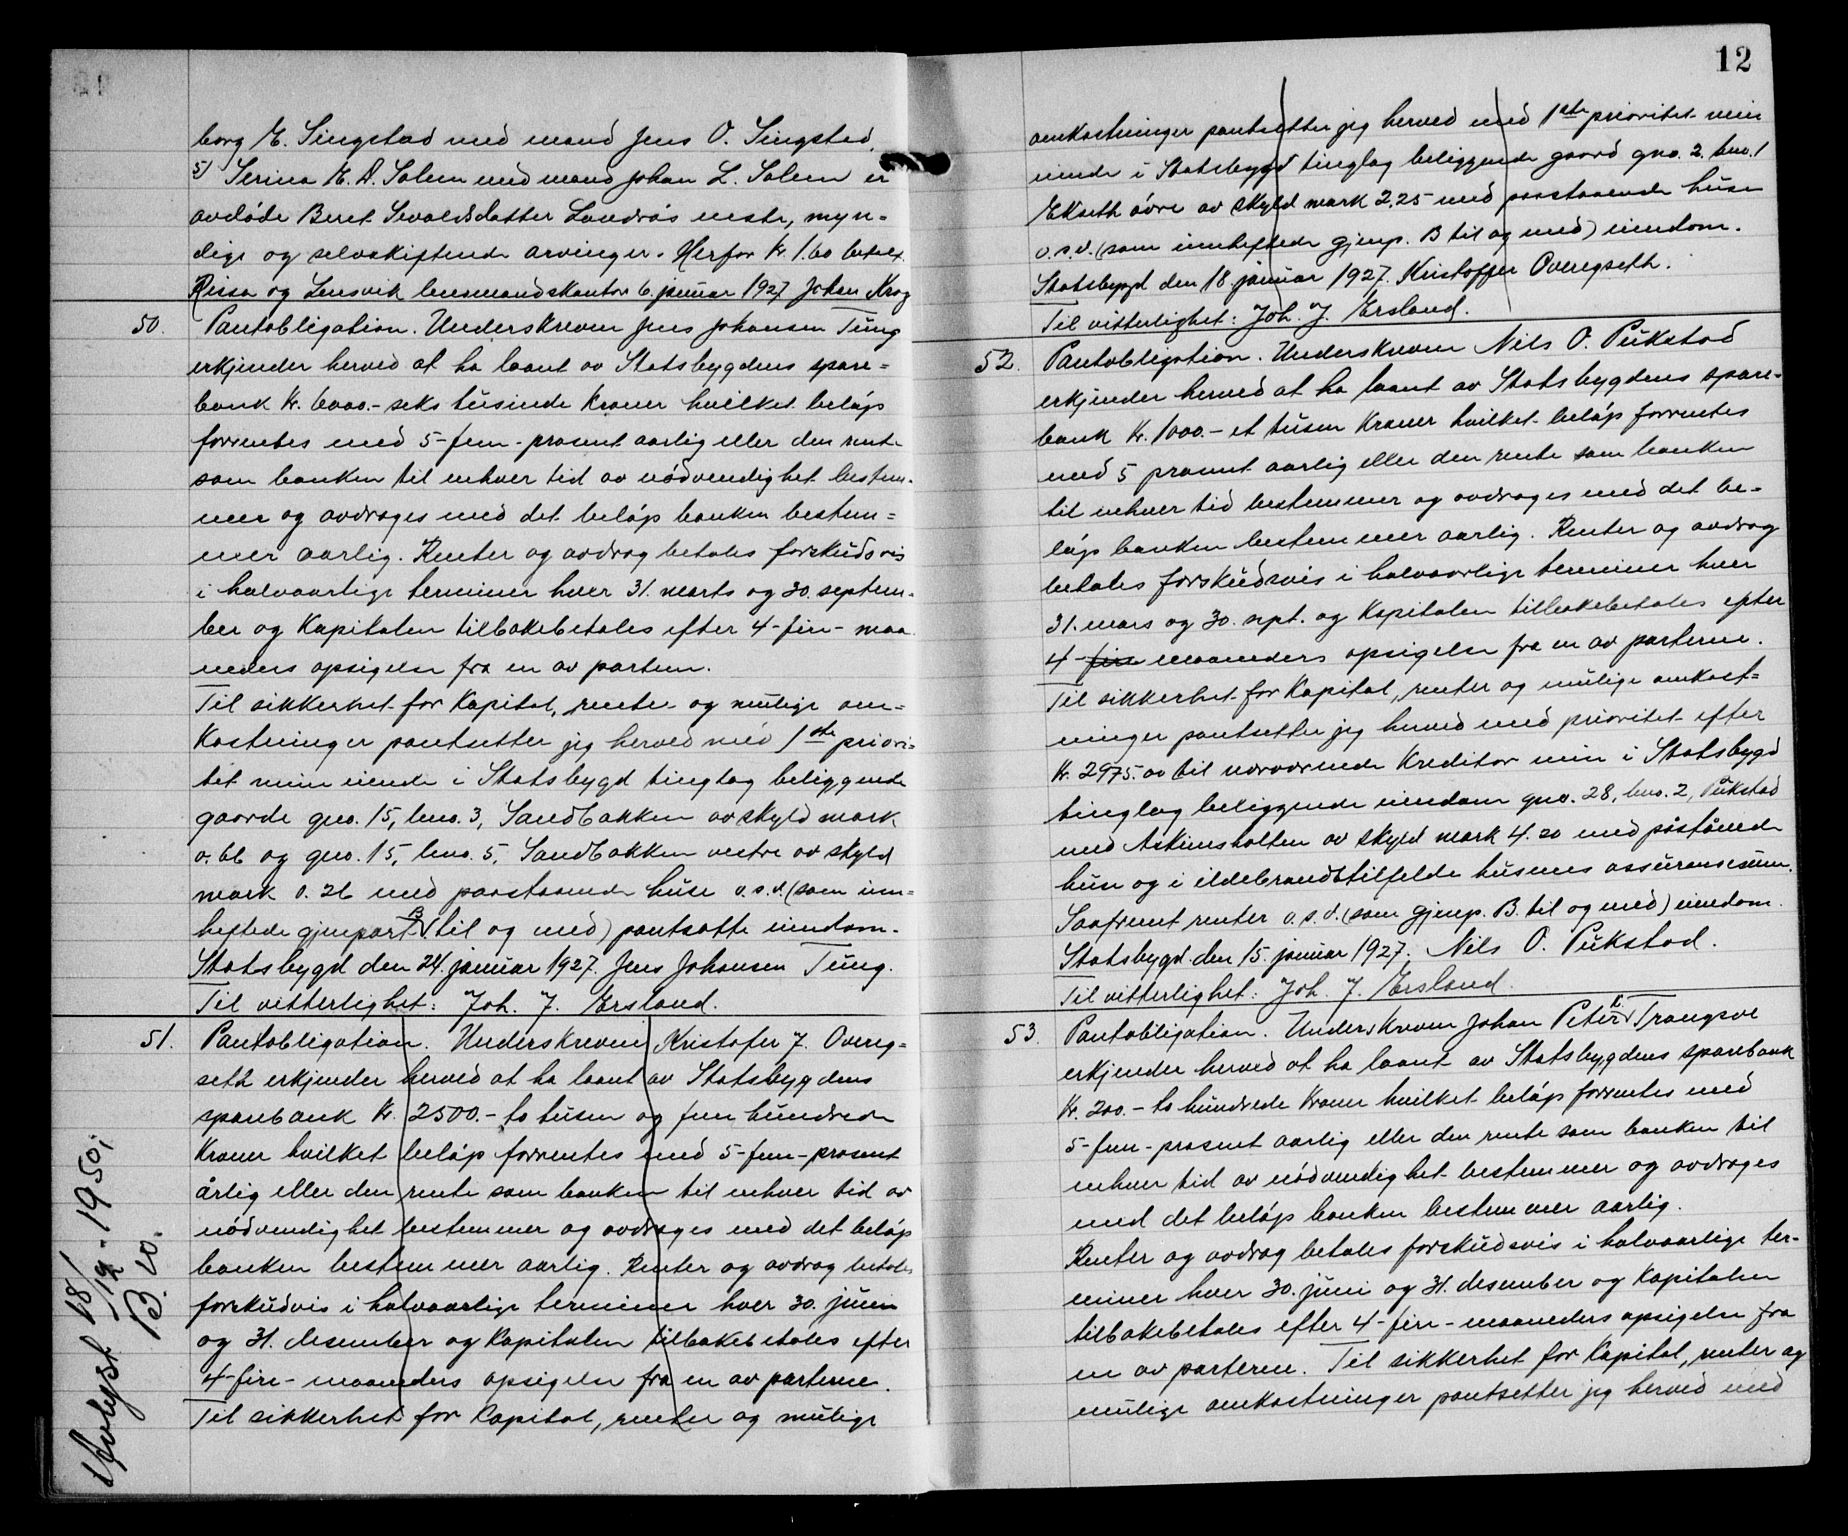 borg E. Singstad med mand Jens O. Singstad,
5) Serina E. D. Solem med mand Johan L. Solem er
avdøde Beret Sevaldsdatter Landrøs eneste, myn=
dige og selvskiftende arvinger. Herfor kr. 1.60 betalt.
Rissa og Lensvik lensmandskontor 6. januar 1927 Johan Krog
50. Pantobligation. Underskreven Jens Johansen Tung
erkjender herved at ha laant av Statsbygdens spare=
bank kr. 6000.- seks tusinde kroner hvilket beløp
forrentes med 5-fem-prosent aarlig eller den rente
som banken til enhver tid av nødvendighet bestem-
mer og avdrages med det beløp banken bestem=
mer aarlig. Renter og avdrag betales forskudsvis
i halvaarlige terminer hver 31. marts og 30. septem-
ber og kapitalen tilbakebetales efter 4-fire- maa
neders opsigelse fra en av partern.
Til sikkerhet for kapital, renter og mulige om=
kostninger pantsetter jeg herved med 1ste priori=
tet min eiende i Statsbygd tinglag beliggende
gaarde gno. 15, bno. 3, Sandbakken av skyld mark
0.66 og gno. 15, bno. 5, Sandbakken vestre av skyld
mark 0.26 med paastaaende huse o.s.v. (som inn=
heftede gjenpart B til og med) pantsatte eiendom.
Statsbygd den 24. januar 1927. Jens Johansen Tung.
Til vitterlighet: Joh. J. Ersland.
51. Pantobligation. Underskreven Kristofer J. Overeg=
seth erkjender herved at ha laant av Statsbygdens
sparebank kr. 2500.- to tusen og fem hundrede
kroner hvilket beløp forrentes med 5-fem-prosent
årlig eller den rente som banken til enhver tid av
nødvendighet bestemmer og avdrages med det beløp
banken bestemmer aarlig. Renter og avdrag betales
forskudvis i halvaarlige terminer hver 30. juni
og 31. desember og kapitalen tilbakebetales efter
4-fire- maaneders opsigelse fra en av parterne.
Til sikkerhet for kapital, renter og mulige
Avlyst 18/12-1950;
B. 10.
12
omkostninger pantsetter jeg herved med 1ste prioritet min
eiende i Statsbygd tinglag beliggende gaard gno. 2, bno. 1
Ekseth øvre av skyld mark 2,25 med paastaaende huse
o.s.v. (som innheftede gjenp. B til og med) eiendom.
Statsbygd den 18 januar 1927. Kristoffer Overegseth.
Til vitterlighet: Joh. J. Ersland.
52. Pantobligation. Underskreven Nils O. Pukstad
erkjender herved at ha laant av Statsbygdens spare-
bank kr. 1000.- et tusen kroner hvilket beløp forrentes
med 5 prosent aarlig eller den rente som banken
til enhver tid bestemmer og avdrages med det be-
løp banken bestemmer aarlig. Renter og avdrag
betales forskudsvis i halvaarlige terminer hver
31. mars og 30. sept. og kapitalen tilbakebetales efter
4 fire maaneders opsigelse fra en av parterne.
Til sikkerhet for kapital, renter og mulige omkost=
ninger pantsetter jeg herved med prioritet efter
kr. 2975.00 til nærværende kreditor min i Statsbygd
tinglag beliggende eiendom gno. 28, bno. 2, Pukstad
med Askimsholten av skyld mark 4.20 med påstående
huse og i ildebrandstilfelde husenes assuransesum.
Saafremt renter o.s.v. (som gjenp. B. til og med) eiendom.
Statsbygd den 15. januar 1927. Nils O. Pukstad.
Til vitterlighet: Joh. J. Ersland.
53. Pantobligation. Underskreven Johan Peter K. Trangsve
erkjender herved at ha laant av Statsbygdens sparebank
kr. 200.- to hundrede kroner hvilket beløp forrentes med
5-fem-prosent aarlig eller den rente som banken til
enhver tid av nødvendighet bestemmer og avdrages
med det beløp banken bestemmer aarlig.
Renter og avdrag betales forskudsvis i halvaarlige ter-
miner hver 30. juni og 31. desember og kapitalen
tilbakebetales efter 4-fire-maaneders opsigelse fra
en av parterne. Til sikkerhet for kapital, renter og
mulige omkostninger pantsetter jeg herved med